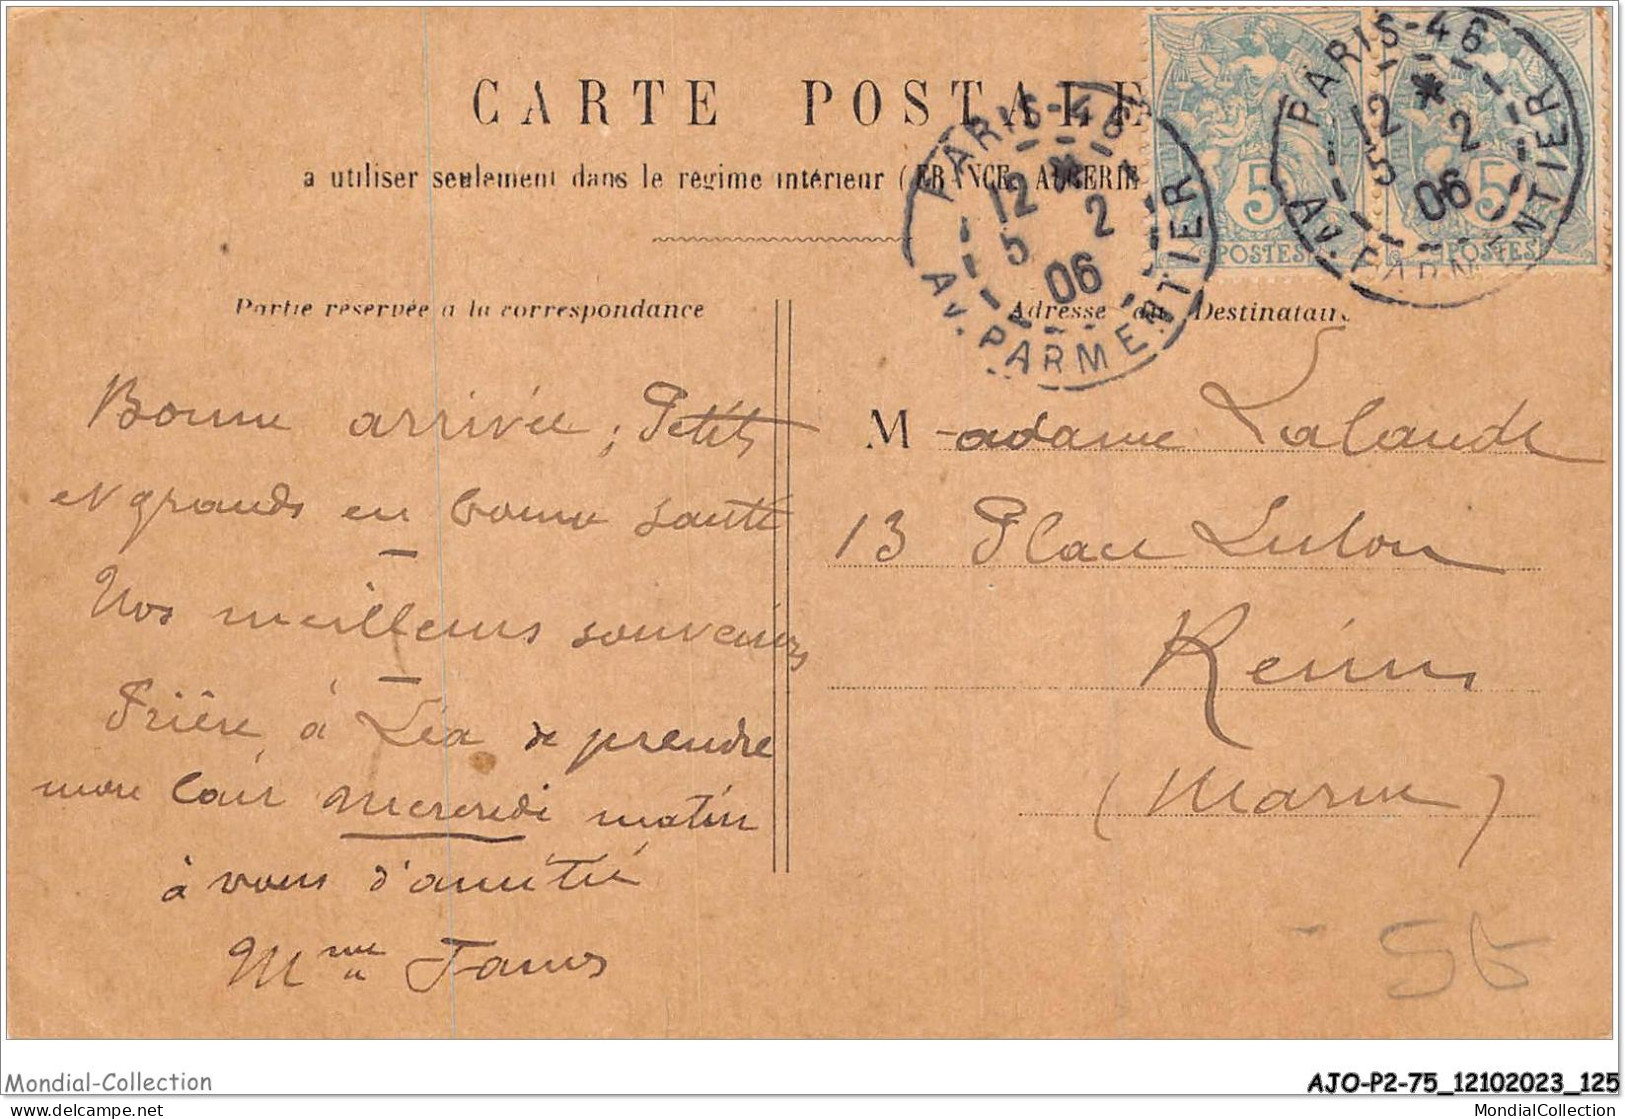 CARTE POSTALE
a utiliser seulement dans le régime intérieur (FRANCE, ALGERIE
PARIS-46
12 *
5 2
06
AV. PARMENTIER
PARIS-46
12 *
5 2
06
AV. PARMENTIER
5
POSTES
5
POSTES
Partie réservée a la correspondance
Bonne arrivée ; Petits
et grands en bonne santé
Nos meilleurs souvenirs
Prière à Léa de prendre
mon Mercredi matin
à vous d'amitié
Mme
Adresse du Destinataire
Madame Lalande
13 Place
Reims
(Marne)
Mondial-Collection
AJO-P2-75_12102023_125
delcampe.net
MondialCollection